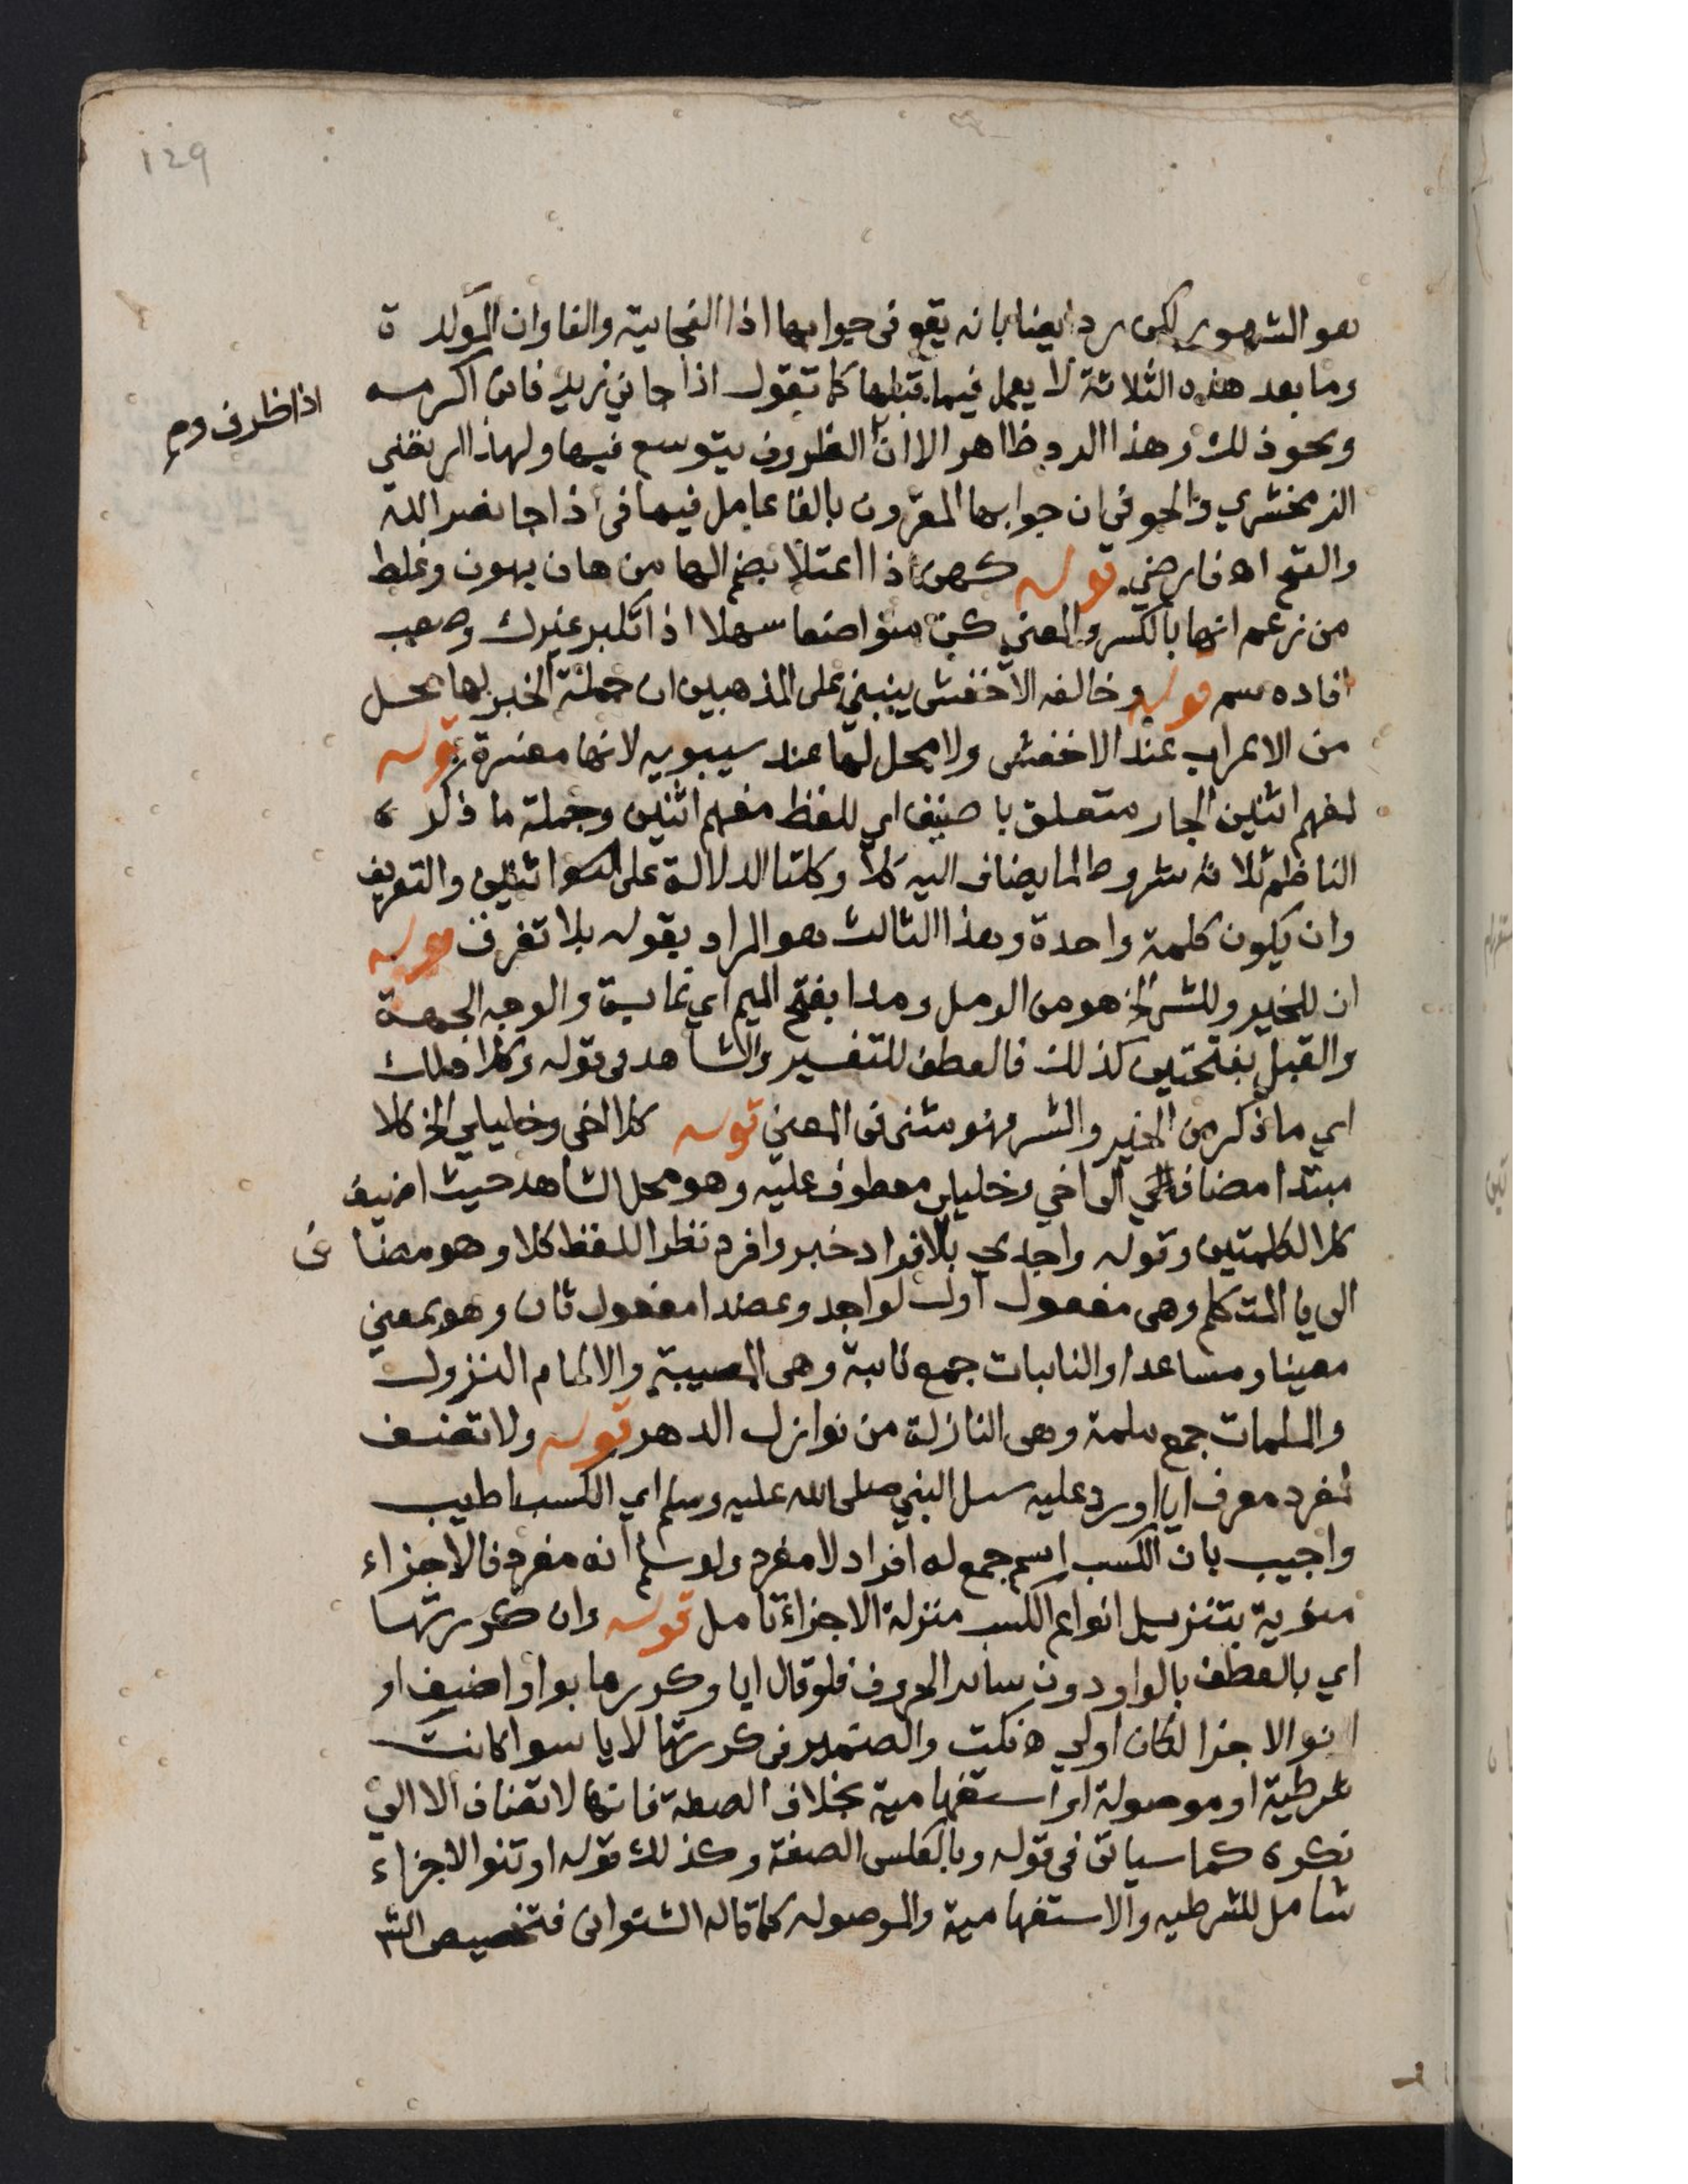 129
هو المشهور لكن رد ايضا بانه يقع في جوابها اذا الفجايية والفا وان المولدة
وما بعد هذه الثلاثة لا يعمل فيما قبلها كما تقول اذا جاني زيد فاني اكرمه
اذا ظرف وم
ونحو ذلك وهذا الرد ظاهر الا ان الظروف يتوسع فيها ولهذا ارتضي
الزمخشري والحوفي ان جوابها المقرون بالفا عامل فيها في اذا جا نصر الله
والفتح اه فارضي قوله كهن اذا اعتلا بضم الها من هان يهون وغلط
من زعم انها بالكسر والمعني كن متواضعا سهلا اذا تكبر غيرك وصعب
افاده سم قوله وخالفه الاخفش ينبني على المذهبين ان جملة الخبر لها محل
من الاعراب عند الاخفش ولا محل لها عند سيبويه لانها مفسرة قوله
لمفهم اثنين الجار متعلق باضيف اي للفظ مفهم اثنين وجملة ما ذكره
الناظم ثلاثة شروط لما يضاف اليه كلا وكلتا الدلالة على اثنين والتعريف
وان يكون كلمة واحدة وهذا الثالث هو المراد بقوله بلا تفرق قوله
ان للخير وللشر الخ هو من الرمل ومدا بفتح الميم اي غاية والوجه الجهة
والقبل بفتحتين كذلك فالعطف للتفسير والشاهد في قوله وكلا ذلك
اي ما ذكر من الخير والشر فهو مثنى في المعني قوله كلا اخي وخليلي الخ كلا
مبتدا مضاف الى اخي وخليلي معطوف عليه وهو محل الشاهد حيث اضيف
كلا لكلمتين وقوله واجدي بالافراد خبر وافرد نظرا للفظ كلا وهو مضاف
الى يا المتكلم وهي مفعول اول لواجد وعضدا مفعول ثان وهو بمعني
معينا ومساعدا والنايبات جمع نايبة وهي المصيبة والالمام النزول
والملمات جمع ملمة وهي النازلة من نوازل الدهر قوله ولا تضف
لمفرد معرف ايا اورد عليه سيل النبي صلى الله عليه وسلم اي الكسب اطيب
واجيب بان الكسب اسم جمع له افراد لا مفرد ولو سلم انه مفرد فالاجزاء
منوية بتنزيل انواع الكسب منزلة الاجزاء تامل قوله وان كررتها
اي بالعطف بالواو دون ساير الحروف فلو قال ايا وكررها بواو اضيف او
انو الاجزا لكان اولي ه نكت والضمير في كررتها لايا سوا كانت
شرطية او موصولة او استفهامية بخلاف الصفة فانها لا تضاف الا الي
نكرة كما سياتي في قوله وبالعكس الصفة وكذلك قوله او تنو الاجزاء
شامل للشرطيه والاستفهامية والموصوله كما قاله الشنواني فتخصيص